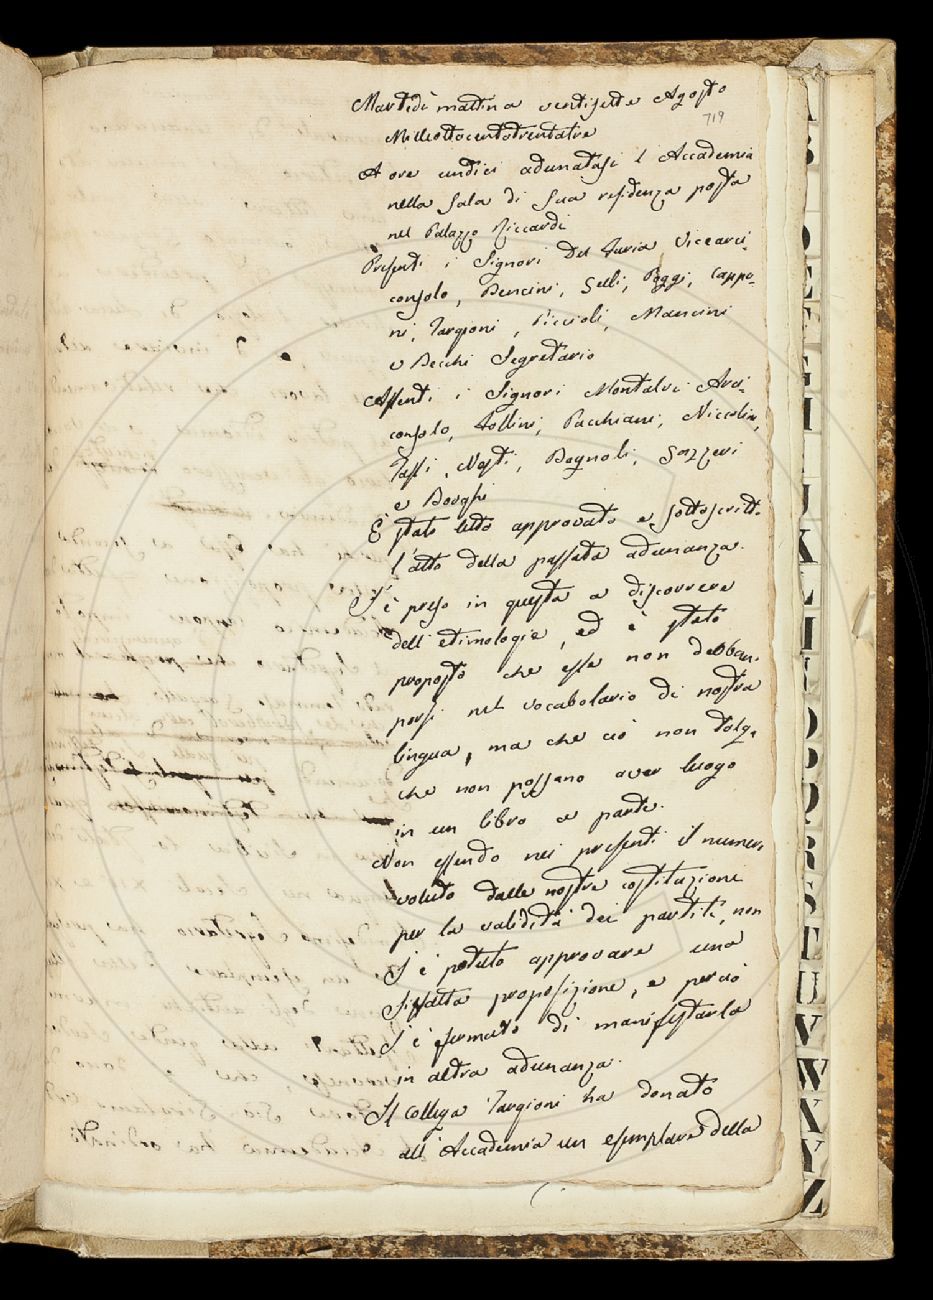 Martedì mattina ventisette Agosto
719
Milleottocentotrentatre
A ore undici adunatasi l'Accademia
nella Sala di Sua residenza posta
nel Palazzo Riccardi
Presenti i Signori Del Furia Vicearci-
consolo, Bencini, Selli, Poggi, Cappo-
ni, Targioni, Piccioli, Mancini
e Becchi Segretario
Assenti i Signori Montalvi Arci-
consolo, Follini, Pacchiani, Niccolini,
Tassi, Nesti, Bagnoli, Gazzeri
e Borghi
È stato letto approvato e sottoscritto
l'atto della passata adunanza.
S'è preso in questa a discorrere
dell'etimologie, ed è stato
proposto che esse non debban-
porsi nel vocabolario di nostra
lingua, ma che ciò non tolga
che non possano aver luogo
in un libro a parte.
Non essendo nei presenti il numero
voluto dalle nostre costituzione
per la validità dei partiti, non
s'è potuto approvare una
siffatta proposizione, e perciò
s'è fermato di manifestarla
in altra adunanza.
Il collega Targioni ha donato
all'Accademia un esemplare della
A
B
D
E
F
G
H
I
J
K
L
M
N
O
P
Q
R
S
T
U
V
W
X
Y
Z